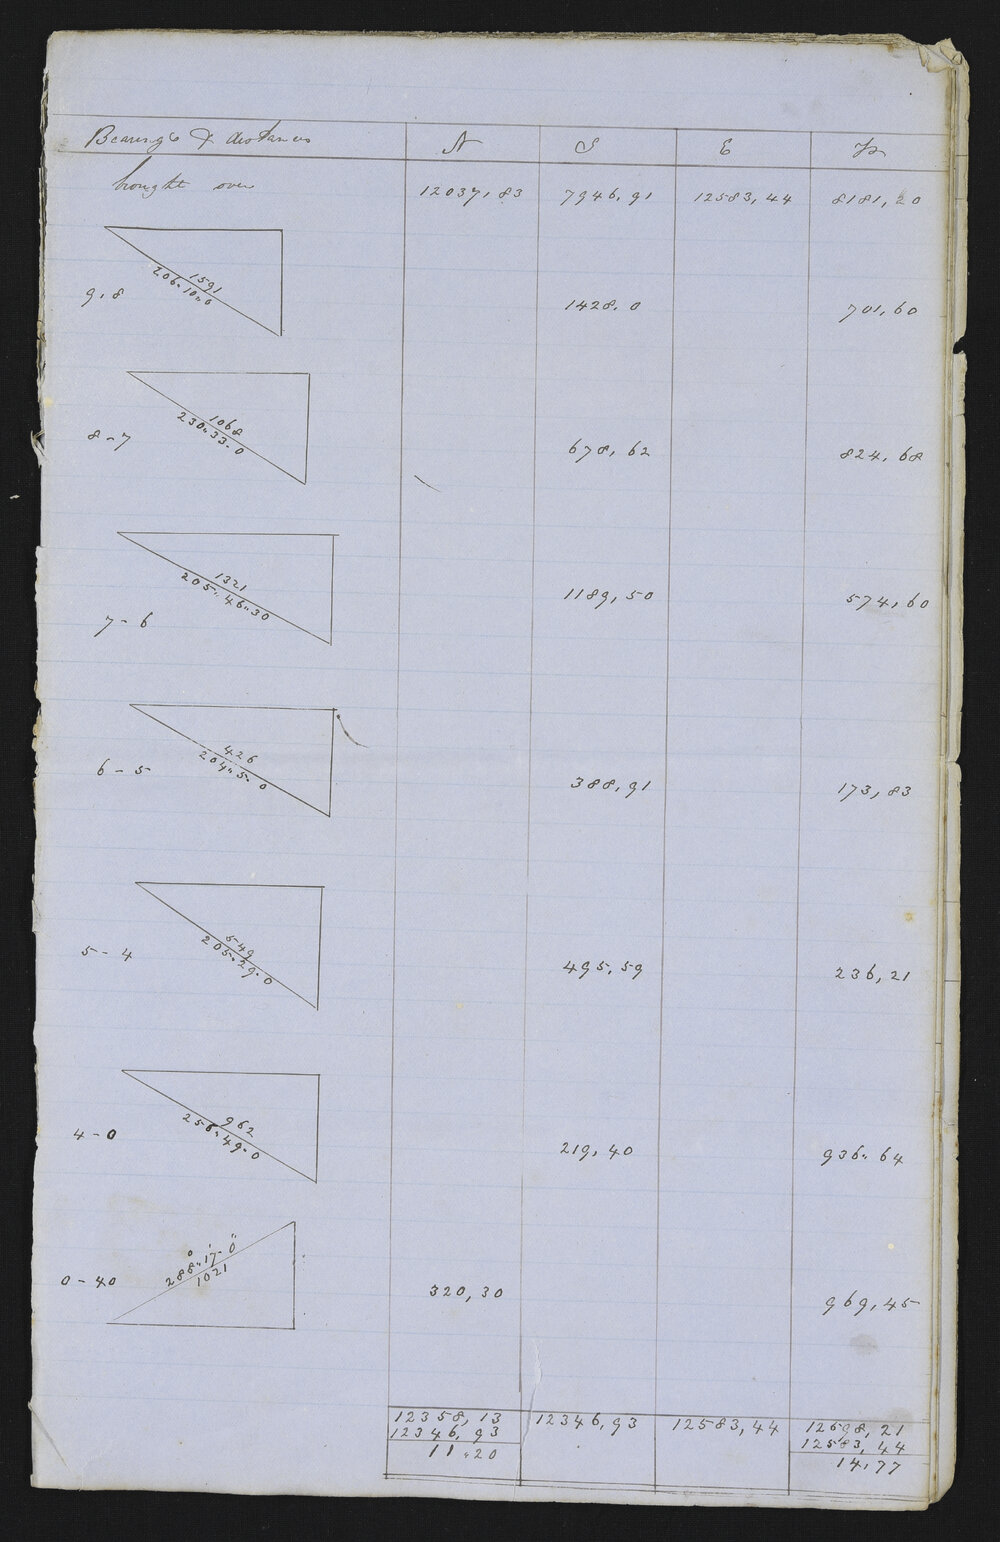 Bearings & distances N S E W
brought over 12037,83 7946,91 12583,44 8181,20
1591
206"10"0
9,8 1428,0 701,60
1068
230"33-0
8-7 678,62 824,68
1321
205"46"30
7-6 1189,50 574,60
426
204"5-0
6-5 388,91 173,83
549
205"29-0
5-4 495,59 236,21
962
256"49-0
4-0 219,40 936"64
288°"17'-0"
1021
0-40 320,30 969,45
12358,13 12346,93 12583,44 12598,21
12346,93 12583,44
11"20 14,77